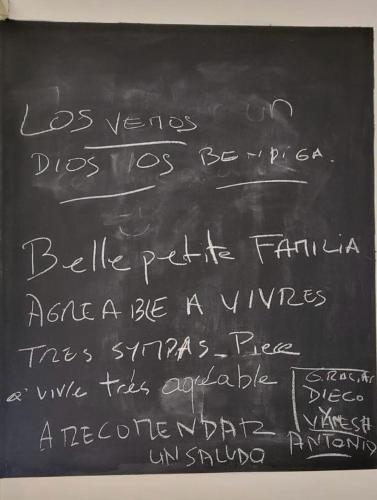 LOS VEMOS un
DIOS LOS BENDIGA.
Belle petite FAMILIA
AGREABLE A VIVRES
TRES SYMPAS_Piece
a vivre très agréable
A RECOMENDAR
UN SALUDO
DIECO
Y
ANTONIO